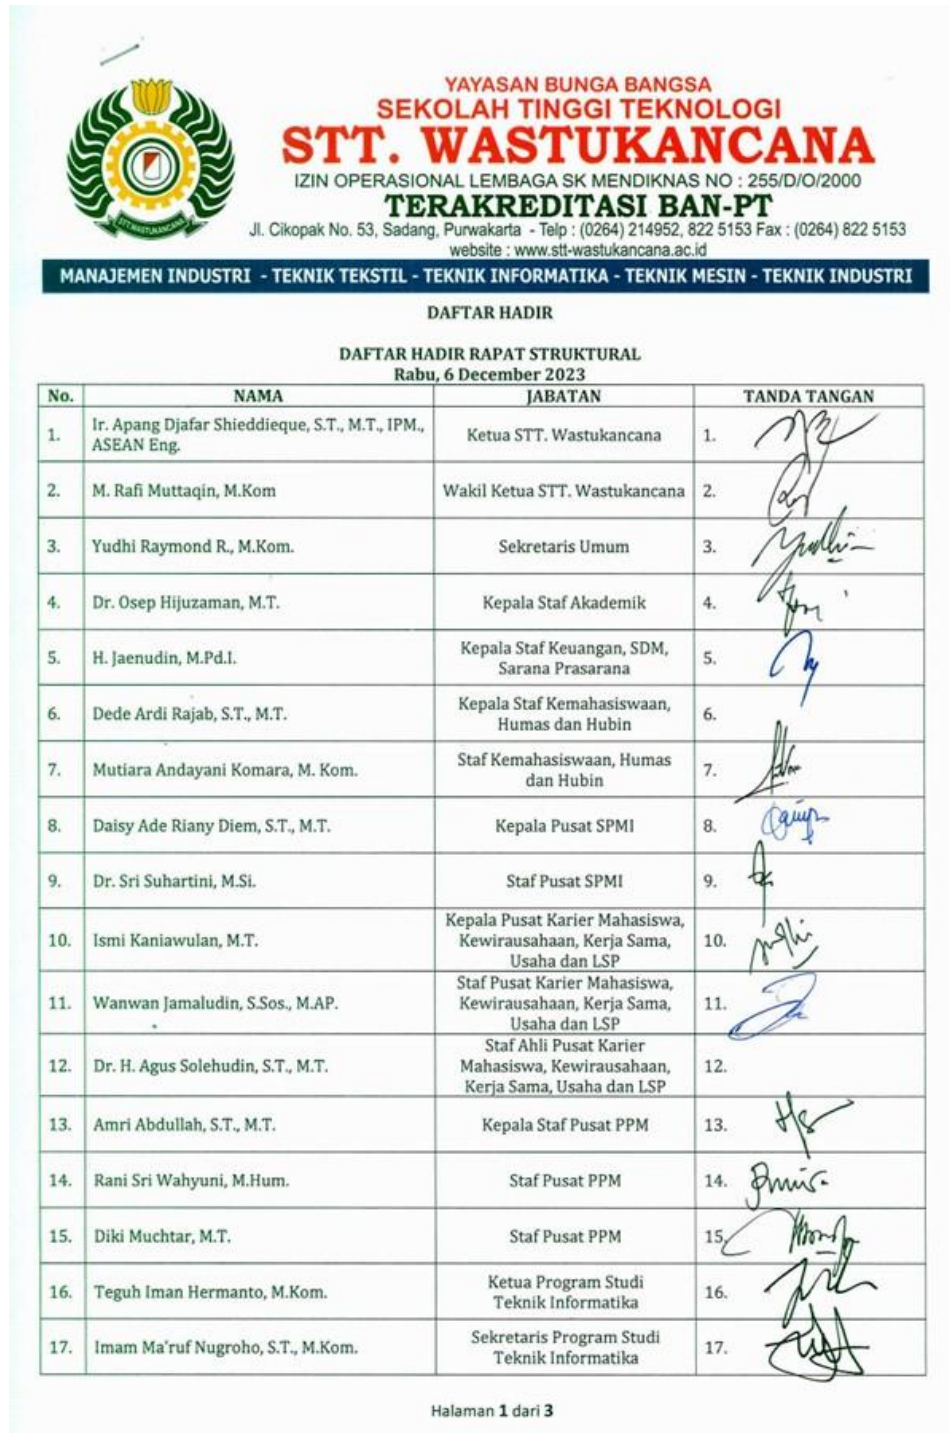 YAYASAN BUNGA BANGSA
SEKOLAH TINGGI TEKNOLOGI
STT. WASTUKANCANA
IZIN OPERASIONAL LEMBAGA SK MENDIKNAS NO : 255/D/O/2000
TERAKREDITASI BAN-PT
Jl. Cikopak No. 53, Sadang, Purwakarta - Telp : (0264) 214952, 822 5153 Fax : (0264) 822 5153
website : www.stt-wastukancana.ac.id
STT.WASTUKANCANA
MANAJEMEN INDUSTRI - TEKNIK TEKSTIL - TEKNIK INFORMATIKA - TEKNIK MESIN - TEKNIK INDUSTRI
DAFTAR HADIR
DAFTAR HADIR RAPAT STRUKTURAL
Rabu, 6 December 2023
No. NAMA JABATAN TANDA TANGAN
1. Ir. Apang Djafar Shieddieque, S.T., M.T., IPM., ASEAN Eng. Ketua STT. Wastukancana 1.
2. M. Rafi Muttaqin, M.Kom Wakil Ketua STT. Wastukancana 2.
3. Yudhi Raymond R., M.Kom. Sekretaris Umum 3.
4. Dr. Osep Hijuzaman, M.T. Kepala Staf Akademik 4.
5. H. Jaenudin, M.Pd.I. Kepala Staf Keuangan, SDM, Sarana Prasarana 5.
6. Dede Ardi Rajab, S.T., M.T. Kepala Staf Kemahasiswaan, Humas dan Hubin 6.
7. Mutiara Andayani Komara, M. Kom. Staf Kemahasiswaan, Humas dan Hubin 7.
8. Daisy Ade Riany Diem, S.T., M.T. Kepala Pusat SPMI 8.
9. Dr. Sri Suhartini, M.Si. Staf Pusat SPMI 9.
10. Ismi Kaniawulan, M.T. Kepala Pusat Karier Mahasiswa, Kewirausahaan, Kerja Sama, Usaha dan LSP 10.
11. Wanwan Jamaludin, S.Sos., M.AP. Staf Pusat Karier Mahasiswa, Kewirausahaan, Kerja Sama, Usaha dan LSP 11.
12. Dr. H. Agus Solehudin, S.T., M.T. Staf Ahli Pusat Karier Mahasiswa, Kewirausahaan, Kerja Sama, Usaha dan LSP 12.
13. Amri Abdullah, S.T., M.T. Kepala Staf Pusat PPM 13.
14. Rani Sri Wahyuni, M.Hum. Staf Pusat PPM 14.
15. Diki Muchtar, M.T. Staf Pusat PPM 15.
16. Teguh Iman Hermanto, M.Kom. Ketua Program Studi Teknik Informatika 16.
17. Imam Ma'ruf Nugroho, S.T., M.Kom. Sekretaris Program Studi Teknik Informatika 17.
Halaman 1 dari 3